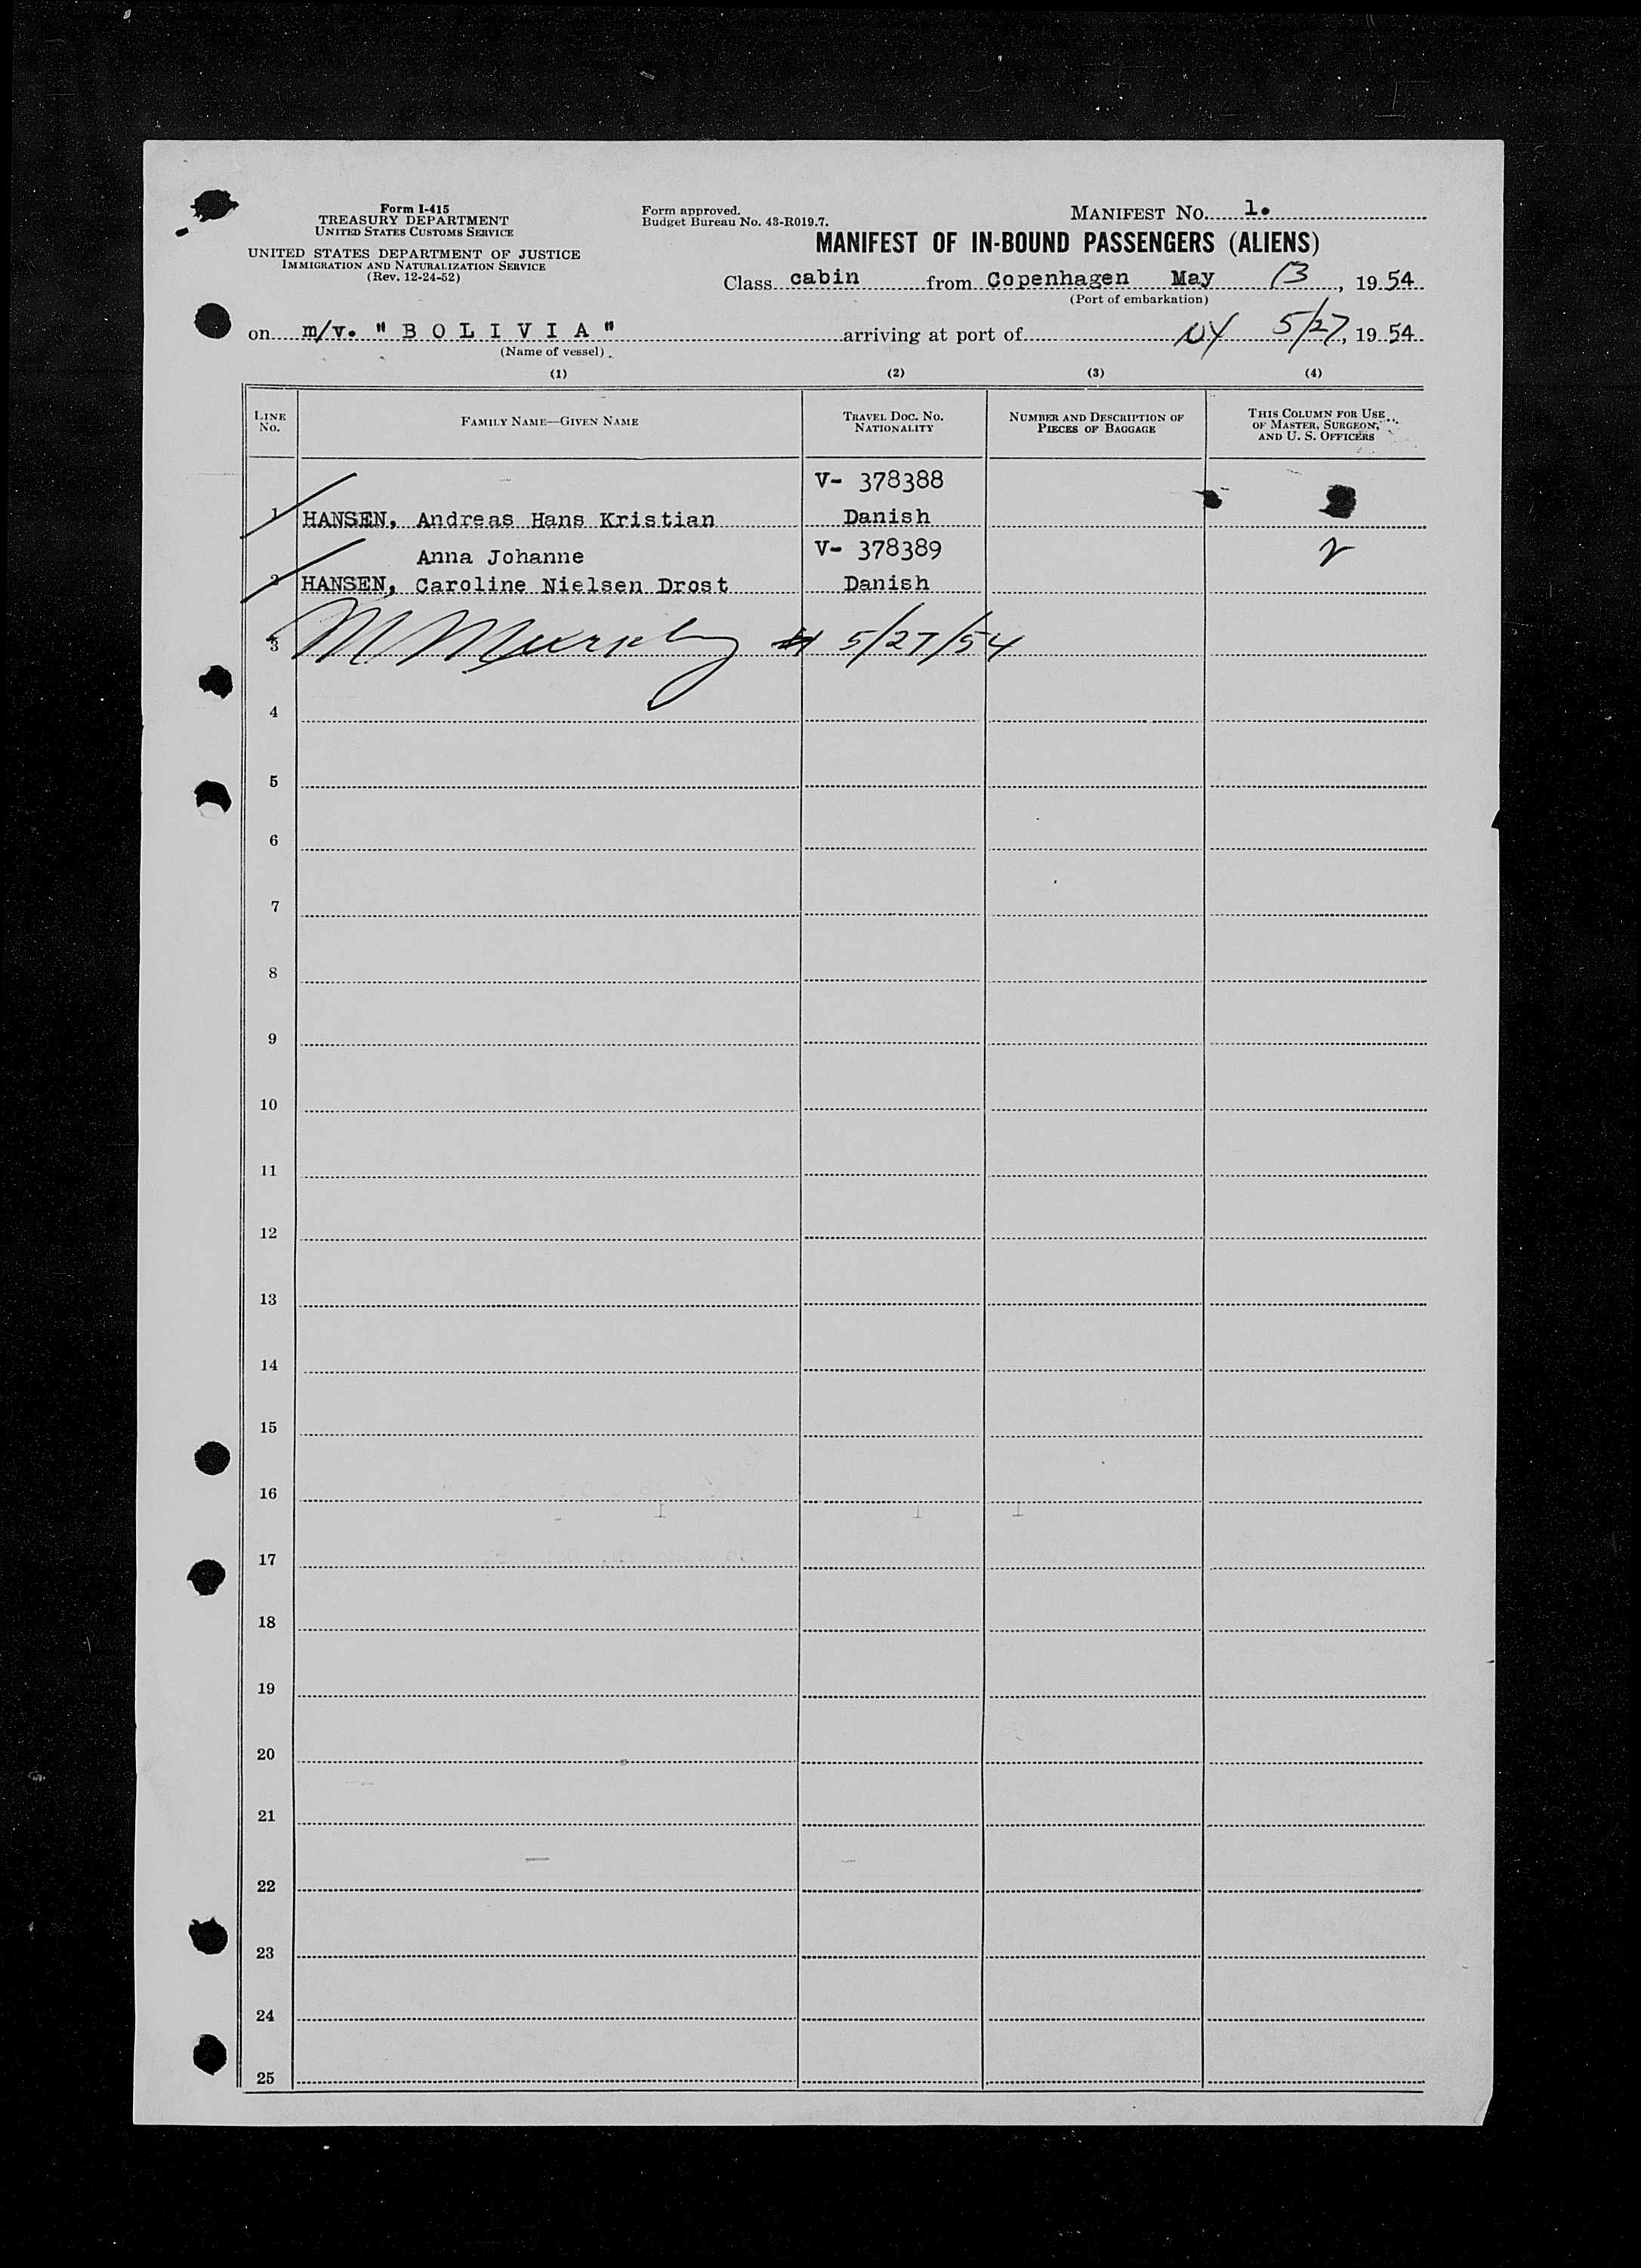 Form I-415
TREASURY DEPARTMENT
UNITED STATES CUSTOMS SERVICE
UNITED STATES DEPARTMENT OF JUSTICE
IMMIGRATION AND NATURALIZATION SERVICE
(Rev. 12-24-52)
Form approved.
Budget Bureau No. 43-R019.7.
MANIFEST NO. 1.
MANIFEST OF IN-BOUND PASSENGERS (ALIENS)
Class cabin from Copenhagen May 13, 1954
(Port of embarkation)
on m/v. "BOLIVIA" arriving at port of NY 5/27, 1954
(Name of vessel)
(1) (2) (3) (4)
LINE NO. FAMILY NAME—GIVEN NAME TRAVEL DOC. NO. NATIONALITY NUMBER AND DESCRIPTION OF PIECES OF BAGGAGE THIS COLUMN FOR USE OF MASTER, SURGEON, AND U. S. OFFICERS
V- 378388
1 HANSEN, Andreas Hans Kristian Danish
Anna Johanne V- 378389
2 HANSEN, Caroline Nielsen Drost Danish
3 M Murphy 5/27/54
4
5
6
7
8
9
10
11
12
13
14
15
16
17
18
19
20
21
22
23
24
25